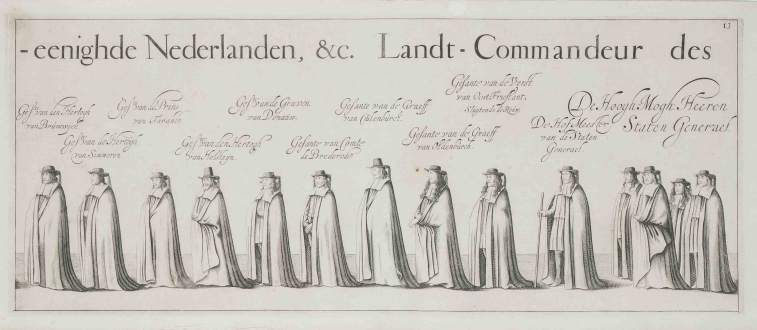 13
-eenighde Nederlanden, &c. Landt-Commandeur des
Ges.t van den Hertogh
van Brunsweeck.
Ges.t van de Hertogh
van Simmeren.
Ges.t van de Prins
van Tarante.
Ges.t van den Hertogh
van Holsteyn.
Ges.t van de Graven
van Donau.
Gesante van Comte
de Brederode
Gesante van de Graeff
van Culenburck.
Gesante van de Graeff
van Oldenburch.
Gesante van de Vorst
van Oost Frieslant,
De Hof Meester
van de Staten
Generael.
De Hoogh Mogh. Heeren
Staten Generael.